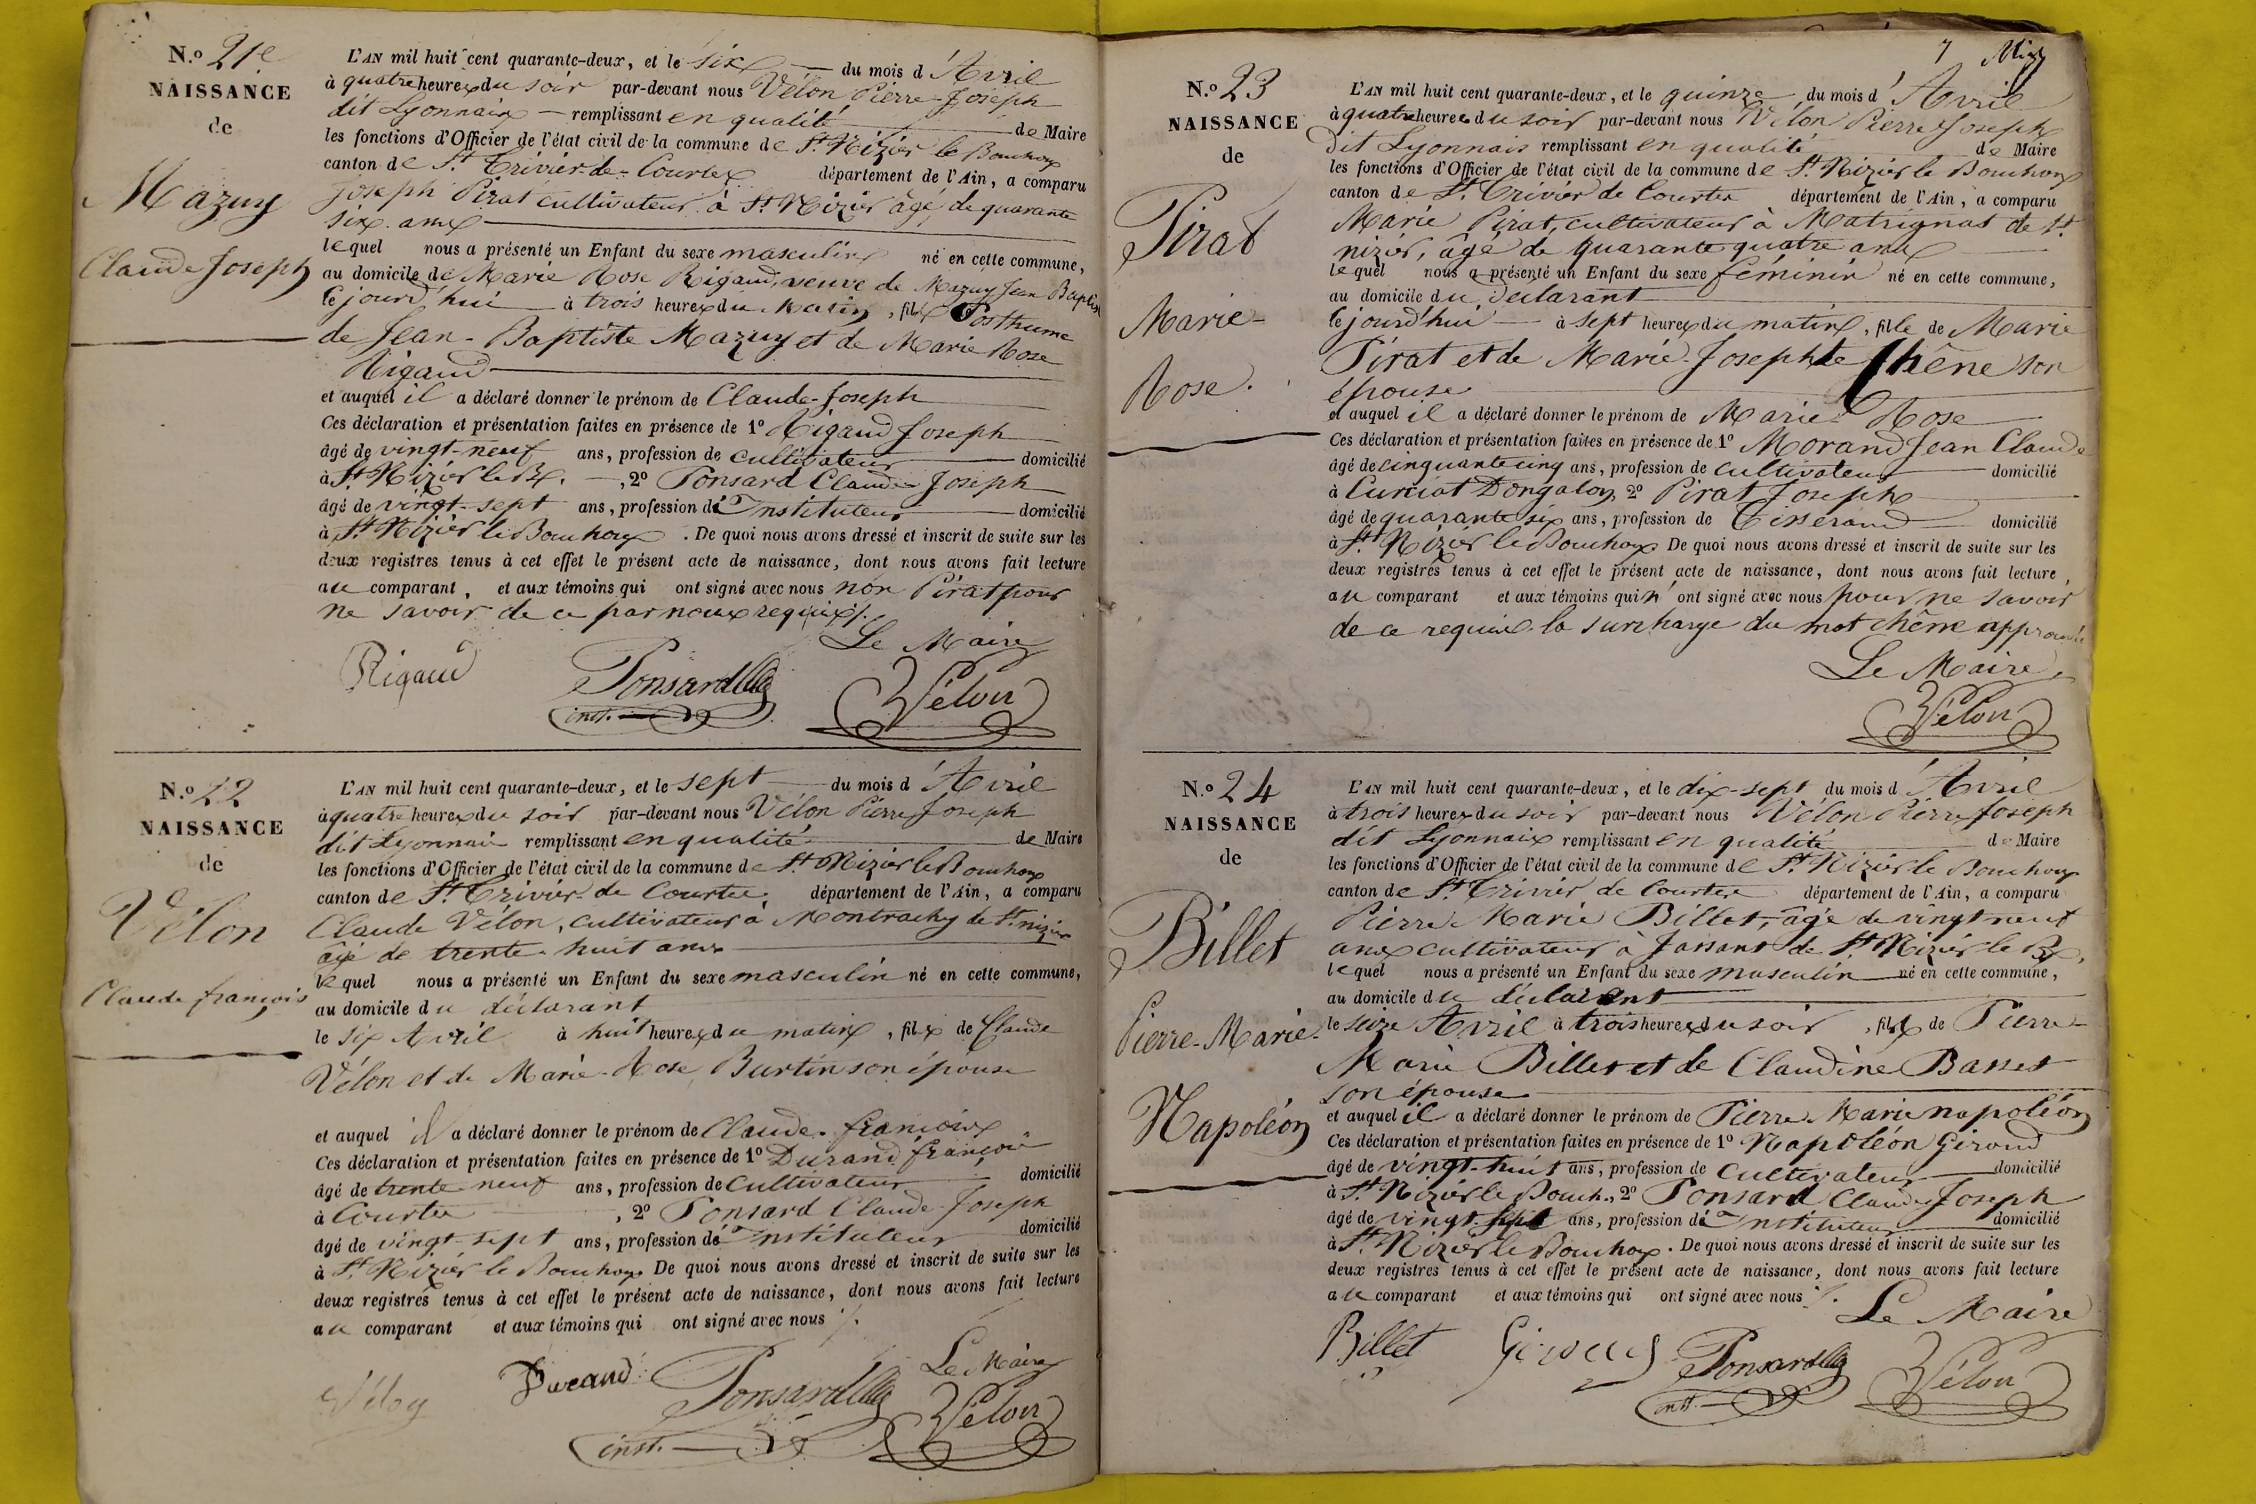 N.º 21e
NAISSANCE
de
Mazuy
Claude Joseph
L'AN mil huit cent quarante-deux, et le six du mois d'Avril
à quatre heures du soir par-devant nous Vélon Pierre Joseph
dit Lyonnais remplissant en qualité de Maire
les fonctions d'Officier de l'état civil de la commune de St. Nizier le Bouchoux
canton de St. Trivier-de-Courtes département de l'Ain, a comparu
Joseph Pirat cultivateur à St. Nizier âgé de quarante
six ans
lequel nous a présenté un Enfant du sexe masculin né en cette commune,
au domicile de Marie Rose Rigaud, veuve de Mazuy Jean Baptiste
le jourd'hui à trois heures du matin, fils Posthume
de Jean-Baptiste Mazuy et de Marie Rose
Rigaud
et auquel il a déclaré donner le prénom de Claude-Joseph
Ces déclaration et présentation faites en présence de 1º Rigaud Joseph
âgé de vingt-neuf ans, profession de cultivateur domicilié
à St. Nizier le Bx. , 2º Ponsard Claude-Joseph
âgé de vingt-sept ans, profession d'Instituteur domicilié
à St. Nizier le Bouchoux. De quoi nous avons dressé et inscrit de suite sur les
deux registres tenus à cet effet le présent acte de naissance, dont nous avons fait lecture
au comparant, et aux témoins qui ont signé avec nous non Pirat pour
ne savoir de ce par nous requis /.
Le Maire
Rigaud Ponsard Vélon
inst.
N.º 22
NAISSANCE
de
Vélon
Claude françois
L'AN mil huit cent quarante-deux, et le sept du mois d'Avril
à quatre heures du soir par-devant nous Vélon Pierre Joseph
dit Lyonnais remplissant en qualité de Maire
les fonctions d'Officier de l'état civil de la commune de St. Nizier le Bouchoux
canton de St. Trivier-de Courtes département de l'Ain, a comparu
Claude Vélon, cultivateur à Montrachy de St. nizier
âgé de trente-huit ans
lequel nous a présenté un Enfant du sexe masculin né en cette commune,
au domicile du déclarant
le six Avril à huit heures du matin, fils de Claude
Vélon et de Marie-Rose Burtin son épouse
et auquel il a déclaré donner le prénom de Claude-françois
Ces déclaration et présentation faites en présence de 1º Durand françois
âgé de trente neuf ans, profession de Cultivateur domicilié
à Courtes , 2º Ponsard Claude-Joseph
âgé de vingt-sept ans, profession d'Instituteur domicilié
à St. Nizier le Bouchoux De quoi nous avons dressé et inscrit de suite sur les
deux registres tenus à cet effet le présent acte de naissance, dont nous avons fait lecture
au comparant et aux témoins qui ont signé avec nous /.
Le Maire
Vélon Durand Ponsard Vélon
inst.
7
N.º 23
NAISSANCE
de
Pirat
Marie-
Rose.
L'AN mil huit cent quarante-deux, et le quinze du mois d'Avril
à quatre heures du soir par-devant nous Vélon Pierre Joseph
dit Lyonnais remplissant en qualité de Maire
les fonctions d'Officier de l'état civil de la commune de St. Nizier le Bouchoux
canton de St. Trivier de Courtes département de l'Ain, a comparu
Marie Pirat, cultivateur à Matrignat de St.
nizier, âgé de quarante quatre ans
lequel nous a présenté un Enfant du sexe féminin né en cette commune,
au domicile du déclarant
le jourd'hui à sept heures du matin, fille de Marie
Pirat et de Marie-Josephte Chêne son
épouse
et auquel il a déclaré donner le prénom de Marie-Rose
Ces déclaration et présentation faites en présence de 1º Morand Jean Claude
âgé de cinquante cinq ans, profession de Cultivateur domicilié
à Curciat Dongalon, 2º Pirat Joseph
âgé de quarante six ans, profession de Tisserand domicilié
à St. Nizier le Bouchoux De quoi nous avons dressé et inscrit de suite sur les
deux registres tenus à cet effet le présent acte de naissance, dont nous avons fait lecture,
au comparant et aux témoins qui n'ont signé avec nous pour ne savoir
de ce requis la surcharge du mot chêne approuvée
Le Maire
Vélon
N.º 24
NAISSANCE
de
Billet
Pierre-Marie-
Napoléon
L'AN mil huit cent quarante-deux, et le dix-sept du mois d'Avril
à trois heures du soir par-devant nous Vélon Pierre Joseph
dit Lyonnais remplissant en qualité de Maire
les fonctions d'Officier de l'état civil de la commune de St. Nizier le Bouchoux
canton de St. Trivier de Courtes département de l'Ain, a comparu
Pierre-Marie Billet, âgé de vingt neuf
ans cultivateur à Jassans de St. Nizier le Bx,
lequel nous a présenté un Enfant du sexe masculin né en cette commune,
au domicile du déclarant
le seize Avril à trois heures du soir, fils de Pierre-
Marie Billet et de Claudine Basset
son épouse
et auquel il a déclaré donner le prénom de Pierre Marie napoléon
Ces déclaration et présentation faites en présence de 1º Napoléon Giroud
âgé de vingt-huit ans, profession de Cultivateur domicilié
à St. Nizier le Bouch., 2º Ponsard Claude Joseph
âgé de vingt-sept ans, profession d'Instituteur domicilié
à St. Nizier le Bouchoux. De quoi nous avons dressé et inscrit de suite sur les
deux registres tenus à cet effet le présent acte de naissance, dont nous avons fait lecture
au comparant et aux témoins qui ont signé avec nous /.
Le Maire
Billet Giroud Ponsard Vélon
inst.